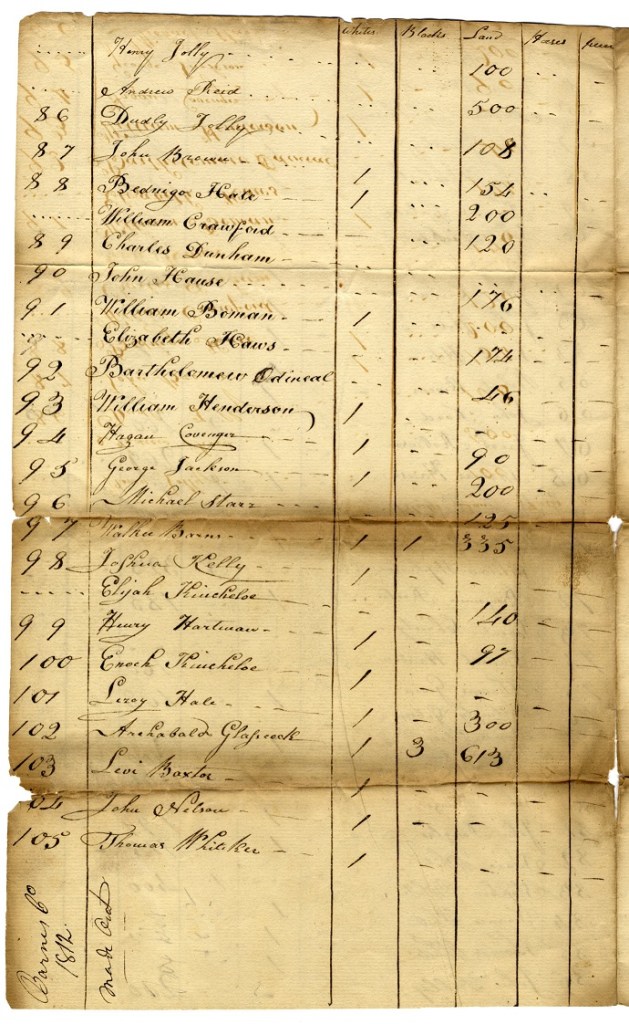 Whites Blacks Land Horses
..... Henry Jolly - - - - 100 - - -
..... Andrew Reid - - - - 500 - - -
86 Dudly Jolly - - - - 108 - - -
87 John Brown - - 1 - 154 - - -
88 Bednigo Hale - - 1 - 200 - - -
..... William Crawford - - - - 120 - - -
89 Charles Dunham - - - - - - -
90 John Hause - - - - 176 - - -
91 William Boman - - 1 - - - - -
..... Elizabeth Haws - - - - 174 - - -
92 Bartholomew Odineal - - - 46 - - -
93 William Henderson 1 - - - - -
94 Hazan Covenger - - 1 - 90 - - -
95 George Jackson - - 1 - 200 - - -
96 Michael Starr - - - 125 - - -
97 Walker Barns - - 1 1 335 - - -
98 Joshua Kelly - - 1 - - - - -
..... Elijah Kincheloe - - - 140 - - -
99 Henry Hartman - - 1 - 97 - - -
100 Enoch Kincheloe 1 - - - - -
101 Leroy Hale - - 1 - 300 - - -
102 Archabald Glascock 1 3 613 - - -
103 Levi Baxtor - 1 - - - -
104 John Nelson - 1 - - - -
105 Thomas Whitiker - 1 - - - -
Barnes Co
1812
made Out